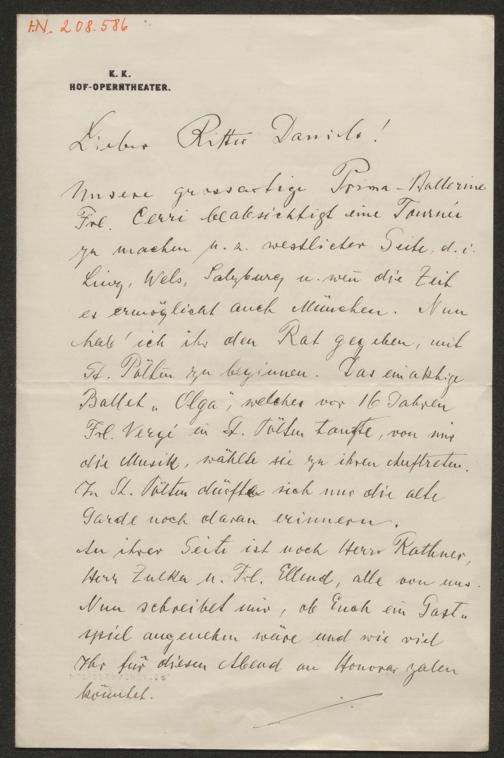 I.N. 208.586
K. K.
HOF-OPERNTHEATER.
Lieber Ritter Daniels!
Unsere grossartige Prima-Ballerine
Frl. Cerri beabsichtigt eine Tournée
zu machen u. z. westlicher Seite. d. i.
Linz, Wels, Salzburg u. wen̄ die Zeit
es ermöglicht auch München. Nun
hab' ich ihr den Rat gegeben, mit
St. Pölten zu beginnen. Das einaktige
Ballet „Olga", welches vor 16 Jahren
Frl. Vergé in St. Pölten tanzte, von mir
die Musik, wählte sie zu ihren Auftreten.
In St. Pölten dürfte sich nur die alte
Garde noch daran erinnern.
An ihrer Seite ist noch Herr Rathner,
Herr Zulka u. Frl. Ellend, alle von uns.
Nun schreibet mir, ob Euch ein Gast-
spiel angenehm wäre und wie viel
Ihr für diesen Abend an Honorar zalen
könntet.